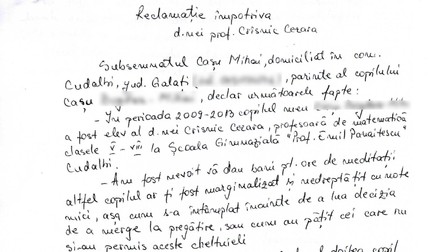 Reclamație împotriva
d.nei prof. Crismic Cezara
Subsemnatul Cașu Mihai, domiciliat în com.
Cudalbi, jud. Galați, parinte al copilului
Cașu, declar următoarele fapte:
- În perioada 2009-2013 copilul meu
a fost elev al d.nei Crismic Cezara, profesoară de matematică
clasele V - VIII la Școala Gimnazială "Prof. Emil Panaitescu"
Cudalbi.
- Am fost nevoit să dau bani pt. ore de meditații
altfel copilul ar fi fost marginalizat și nedreptățit cu note
mici, așa cum s-a întâmplat înainte de a lua decizia
de a merge la pregătire, sau cum au pățit cei care nu
și-au permis aceste cheltuieli
copil